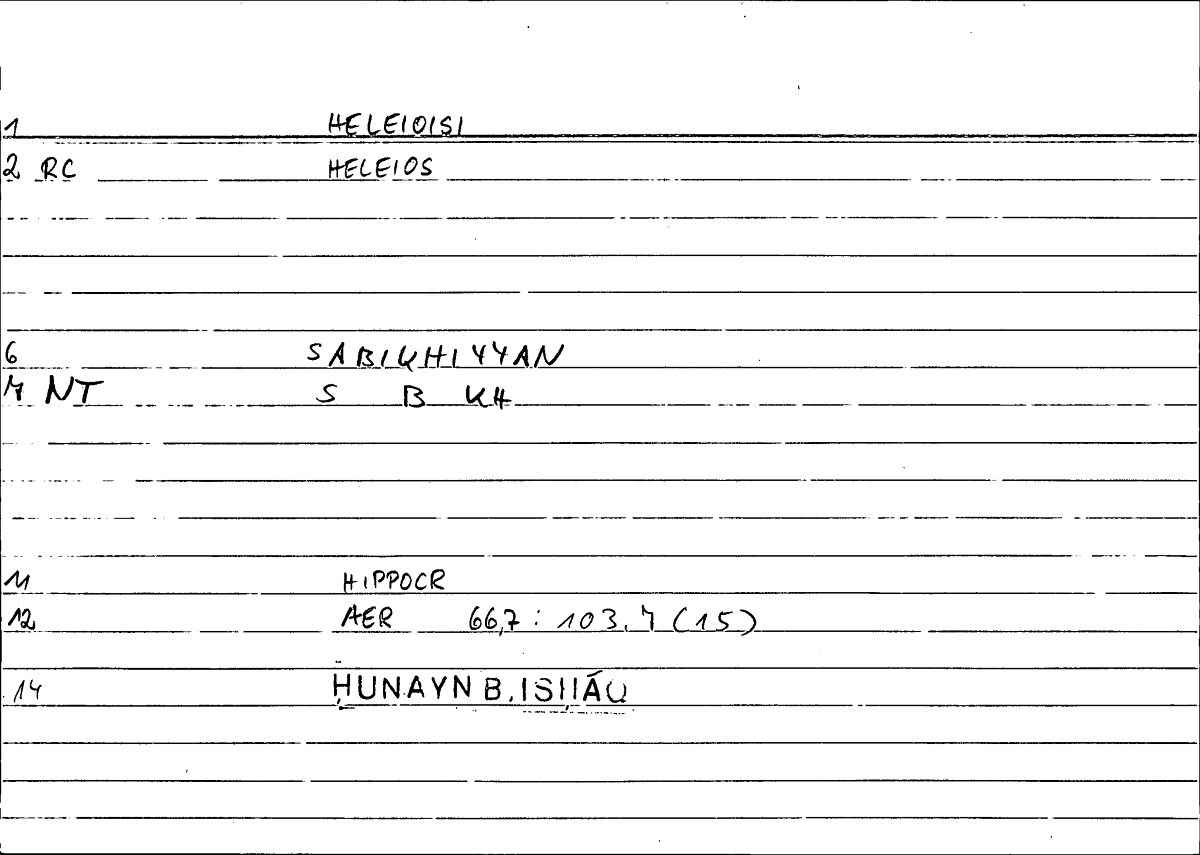 1 HELEIOISI
2 RC HELEIOS
6 SABIKHIYYAN
7 NT S B KH
11 HIPPOCR
12 AER 66,7 : 103.7 (15)
14 ḤUNAYN B. ISḤĀQ